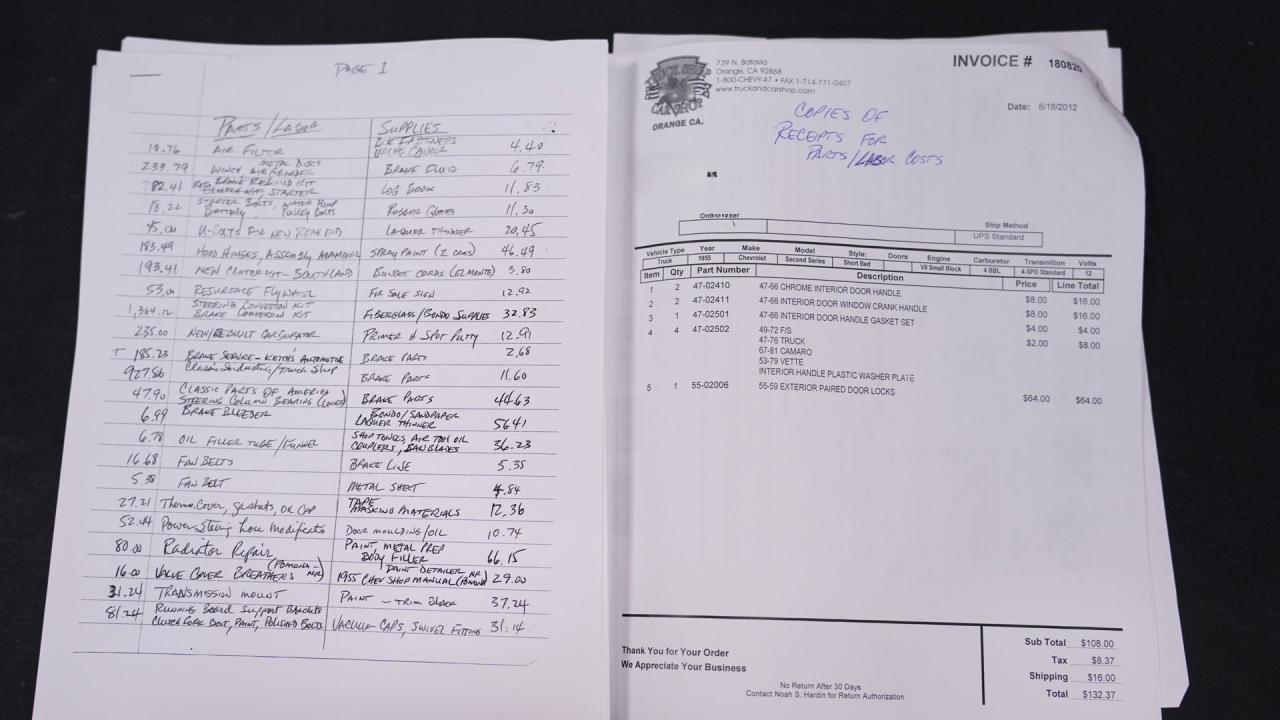 PAGE 1
PARTS/LABOR SUPPLIES
AIR FILTER VALVE COVER 4.40
233.79 WINCH, AIR GRINDER METAL DISCS BRAKE FLUID 6.79
82.41 BRAKE REBUILD KIT STARTER LOG BOOK 11.83
18.22 STARTER BOLTS, WATER PUMP
BATTERY, PULLEY BOLTS RUBBER GLOVES 11.30
45.00 U-BOLTS FOR NEW REAR END LAQUER THINNER 20.45
183.49 HOOD HINGES, ASSEMBLY MANUAL SPRAY PAINT (2 CANS) 46.49
193.41 NEW CLUTCH KIT- BUNGEE CORDS (EL MONTE) 3.80
53.00 RESURFACE FLYWHEEL FOR SALE SIGN 12.92
STEERING CONVERSION KIT
1,364.12 BRAKE CONVERSION KIT FIBERGLASS/BONDO SUPPLIES 32.83
235.00 NEW/REBUILT CARBURATOR PRIMER & SPOT PUTTY 12.91
+ 185.23 BRAKE SERVICE - KEITH'S AUTOMOTIVE BRAKE PARTS 2.68
927.86 Classic Industries/Truck Shop BRAKE PARTS 11.60
47.90 CLASSIC PARTS OF AMERICA
STEERING COLUMN BEARING (LOWER) BRAKE PARTS 44.63
6.99 BRAKE BLEEDER BONDO/SANDPAPER
LAQUER THINNER 56.41
6.78 OIL FILLER TUBE/FUNNEL SHOP TOWELS, AIR TOOL OIL
COUPLERS, SAW BLADES 36.23
16.68 FAN BELTS BRAKE LINE 5.35
5.38 FAN BELT METAL SHEET 4.84
27.21 Thermo. Cover, gaskets, OIL CAP TAPE
MASKING MATERIALS 12.36
52.44 Power Steering hose modification DOOR MOULDING/OIL 10.74
80.00 Radiator Repair PAINT, METAL PREP
BODY FILLER 66.15
16.00 VALVE COVER BREATHERS (POMONA - NR) PAINT DETAILER NR
1955 CHEV SHOP MANUAL (POMONA) 29.00
31.24 TRANSMISSION MOUNT PAINT - TRIM BLACK 37.24
81.24 RUNNING BOARD SUPPORT BRACKETS
CLUTCH FORK BOOT, PAINT, POLISHED BOLTS VACUUM CAPS, SWIVEL FITTING 31.14
TRUCK SHOP
CAR SHOP
ORANGE CA.
739 N. Batavia
Orange, CA 92868
1-800-CHEVY-47 • FAX 1-714-771-0407
www.truckandcarshop.com
INVOICE # 180820
Date: 8/18/2012
COPIES OF
RECEIPTS FOR
PARTS/LABOR COSTS
Ship Method
UPS Standard
Vehicle Type Year Make Model Style: Doors Engine Carburetor Transmition Volts
Truck 1955 Chevrolet Second Series Short Bed V8 Small Block 4 BBL 4-SPD Standard 12
Item Qty Part Number Description Price Line Total
1 2 47-02410 47-66 CHROME INTERIOR DOOR HANDLE $8.00 $16.00
2 2 47-02411 47-66 INTERIOR DOOR WINDOW CRANK HANDLE $8.00 $16.00
3 1 47-02501 47-66 INTERIOR DOOR HANDLE GASKET SET $4.00 $4.00
4 4 47-02502 49-72 F/S $2.00 $8.00
47-76 TRUCK
67-81 CAMARO
53-79 VETTE
INTERIOR HANDLE PLASTIC WASHER PLATE
5 1 55-02006 55-59 EXTERIOR PAIRED DOOR LOCKS $64.00 $64.00
Thank You for Your Order
We Appreciate Your Business
No Return After 30 Days
Contact Noah S. Hardin for Return Authorization
Sub Total $108.00
Tax $8.37
Shipping $16.00
Total $132.37